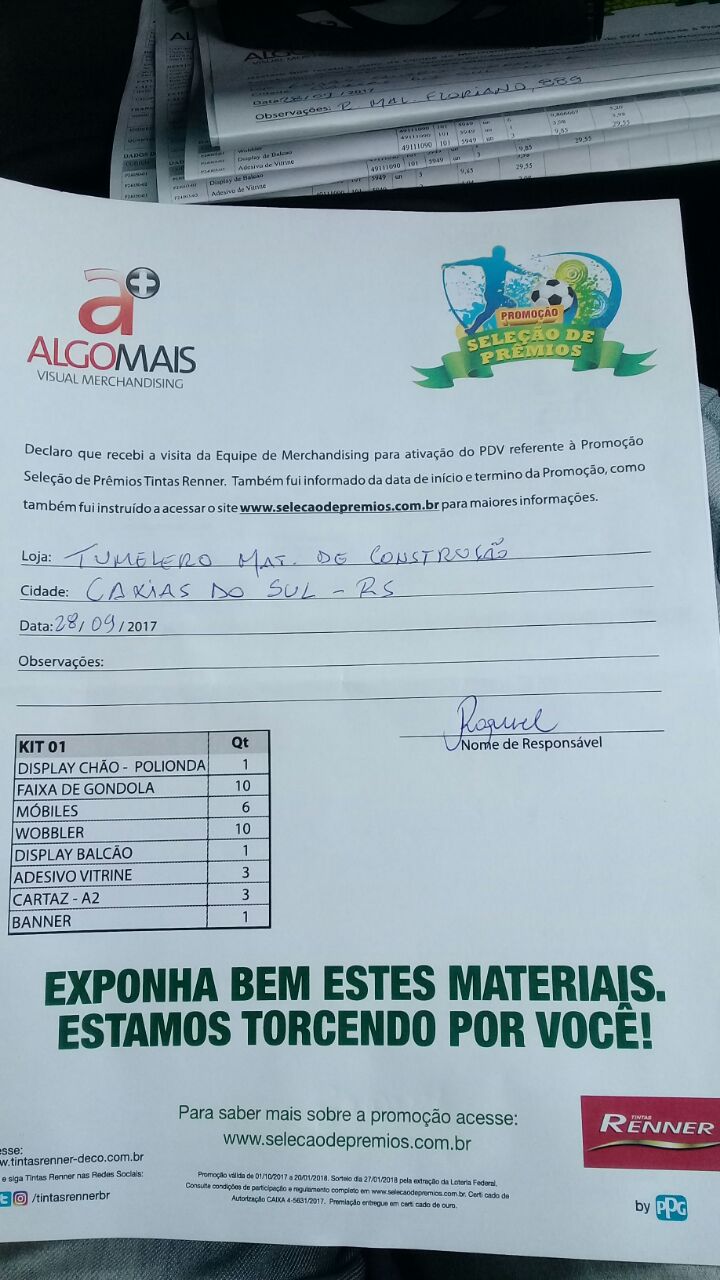 Data: 28/09/2017
Observações: R. MAL. FLORIANO, 889
Display de Balcao
Adesivo de Vitrine
49111090 101 5949 un
Display de Balcao
Adesivo de Vitrine
a+
ALGOMAIS
VISUAL MERCHANDISING
PROMOÇÃO
SELEÇÃO DE
PRÊMIOS
Declaro que recebi a visita da Equipe de Merchandising para ativação do PDV referente à Promoção
Seleção de Prêmios Tintas Renner. Também fui informado da data de início e termino da Promoção, como
também fui instruído a acessar o site www.selecaodepremios.com.br para maiores informações.
Loja: TUMELERO MAT. DE CONSTRUÇÃO
Cidade: CAXIAS DO SUL - RS
Data: 28/09/2017
Observações:
Raquel
Nome de Responsável
KIT 01 Qt
DISPLAY CHÃO - POLIONDA 1
FAIXA DE GONDOLA 10
MÓBILES 6
WOBBLER 10
DISPLAY BALCÃO 1
ADESIVO VITRINE 3
CARTAZ - A2 3
BANNER 1
EXPONHA BEM ESTES MATERIAIS.
ESTAMOS TORCENDO POR VOCÊ!
Para saber mais sobre a promoção acesse:
www.selecaodepremios.com.br
TINTAS
RENNER
esse:
w.tintasrenner-deco.com.br
e siga Tintas Renner nas Redes Sociais:
/tintasrennerbr
Promoção válida de 01/10/2017 a 20/01/2018. Sorteio dia 27/01/2018 pela extração da Loteria Federal.
Consulte condições de participação e regulamento completo em www.selecaodepremios.com.br. Certi cado de
Autorização CAIXA 4-5631/2017. Premiação entregue em certi cado de ouro.
by PPG